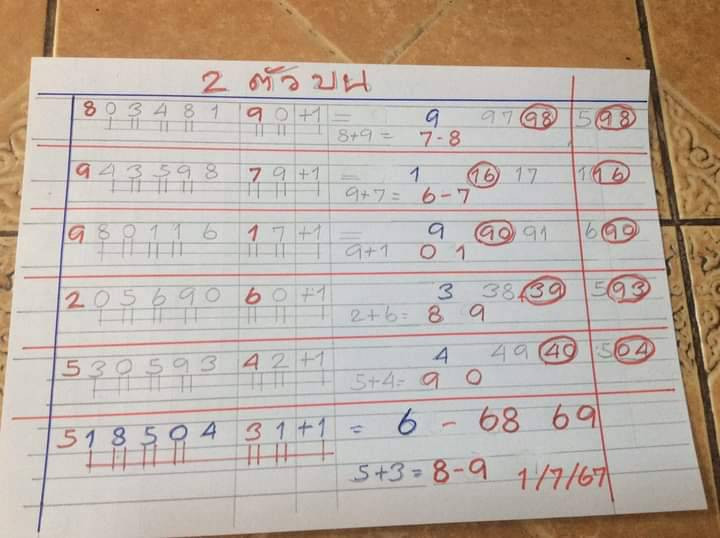 2 ตัวบน
803481 90 +1 = 9 97 98 598
8+9 = 7-8
943598 79 +1 = 1 16 17 116
9+7 = 6-7
980116 17 +1 = 9 90 91 690
9+1 0 1
205690 60 +1 3 38 39 593
2+6= 8 9
530593 42 +1 4 49 40 504
5+4= 9 0
518504 31 +1 = 6 - 68 69
5+3 = 8-9 1/7/67